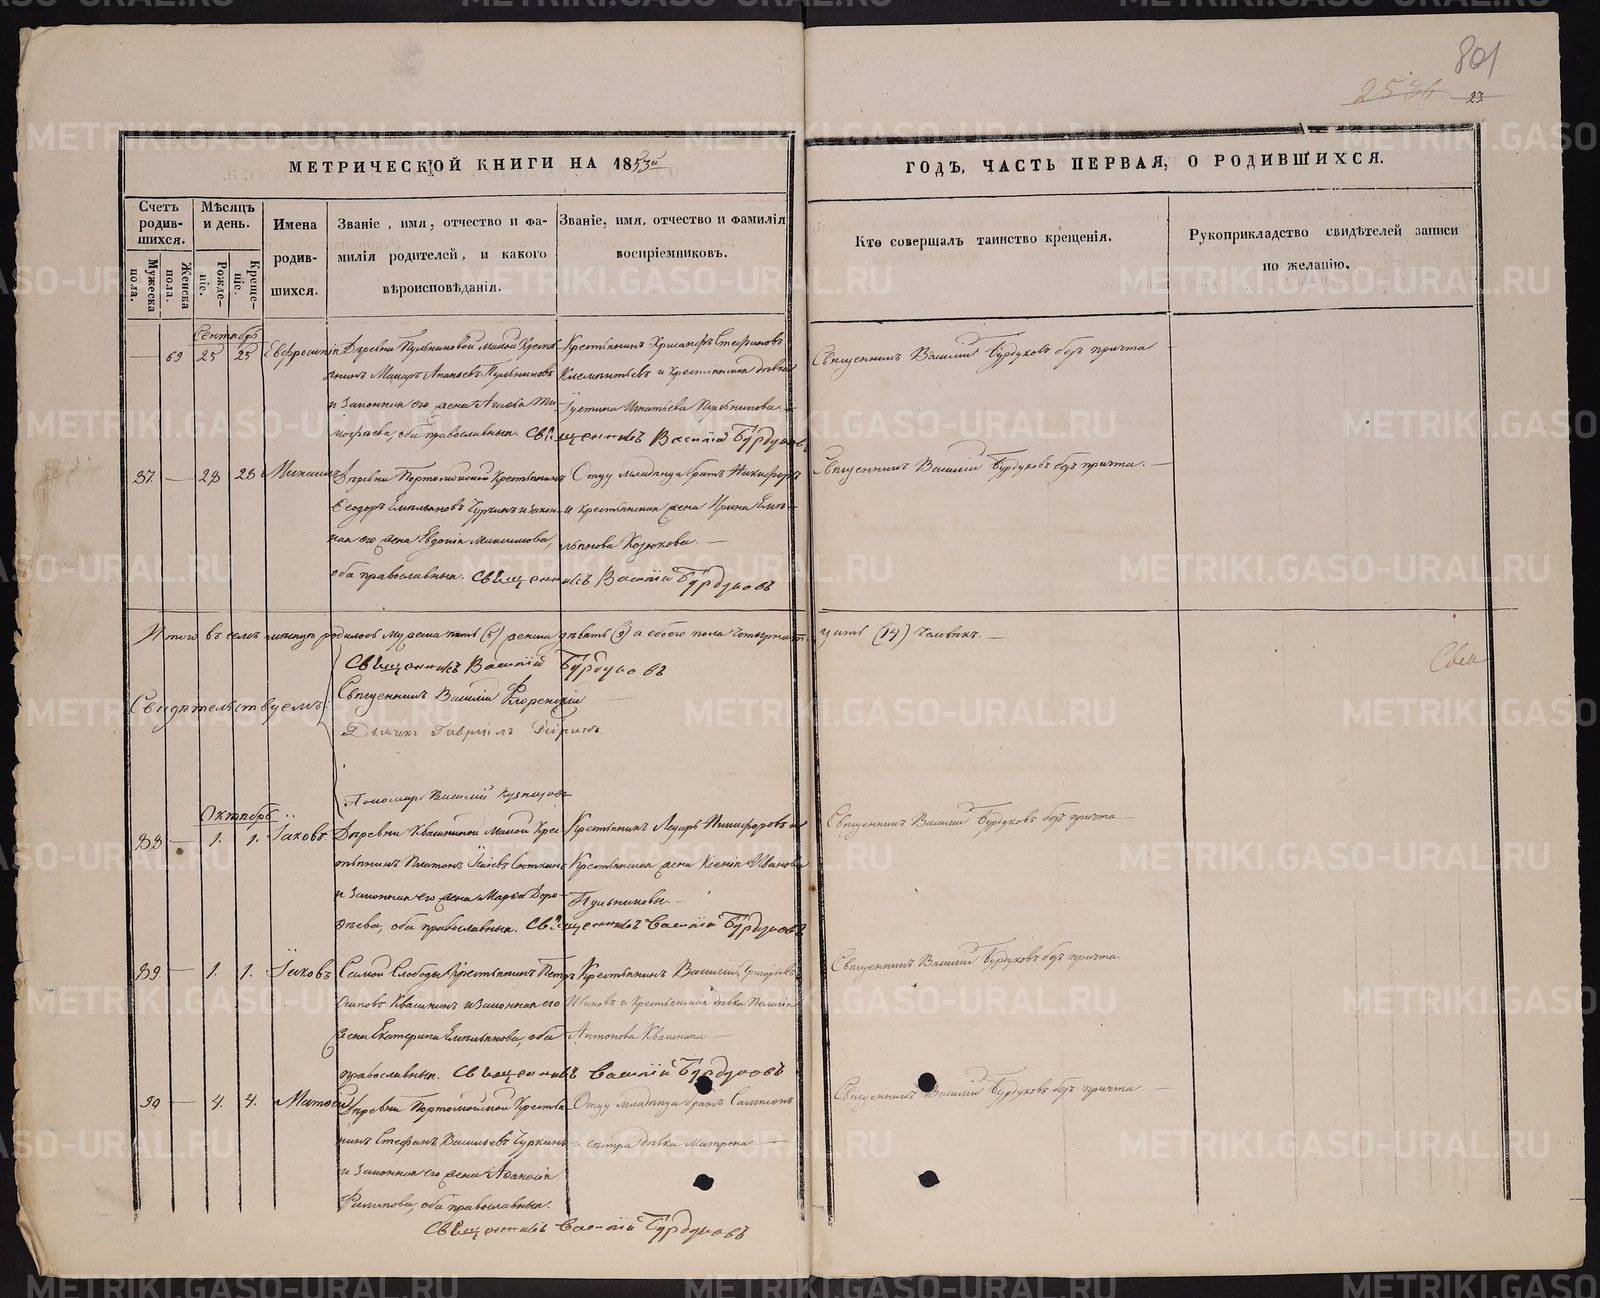 801
25
23.
МЕТРИЧЕСКОЙ КНИГИ НА 1853й
ГОДЪ, ЧАСТЬ ПЕРВАЯ, О РОДИВШИХСЯ.
Счетъ родив-шихся.
Мужеска пола.
Женска пола.
Мѣсяцъ и день.
Рожде-ніе.
Креще-ніе.
Имена родив-шихся.
Званіе, имя, отчество и фа-
милія родителей, и какого
вѣроисповѣданія.
Званіе, имя, отчество и фамилія
воспріемниковъ.
Кто совершалъ таинство крещенія.
Рукоприкладство свидѣтелей записи
по желанію.
Сентябрь
— 69 25 25 Евфросинія
Деревни Пульниковой Малой Кресть-
янинъ Ананьевъ Пульниковъ
и Законная его жена Агафья Ти-
мофѣева, оба православныя. Священникъ Василій Бурдуковъ
Крестьянинъ Хрисанфъ Стефановъ
Клементьевъ и Крестьянская дѣвка
Іустина Игнатьева Пульникова. —
Священникъ Василій Бурдуковъ безъ причта —
37. — 28 28 Михаилъ
Деревни Крестьянинъ
Ѳеодоръ Емельяновъ Чуркинъ и Закон-
ная его жена Евдокія Максимова,
оба православныя. Священникъ Василій Бурдуковъ
Отцу младенца братъ Никифоръ
и крестьянская жена Ирина Емель-
янова Козюкова. —
Священникъ Василій Бурдуковъ безъ причта. —
Итого въ семъ мѣсяцѣ родилось мужеска пять (5) женска девять (9) а обоего пола четырнад-
цать (14) человѣкъ. —
Священникъ Василій Бурдуковъ
Свидѣтельствуемъ:
Священникъ Василій Флоренскій
Дьячекъ Гавріилъ
Пономарь Василій Кузнецовъ
Октябрь
38 — 1. 1. Іаковъ.
Деревни Квашниной Малой Крес-
тьянинъ Платонъ
и Законная его жена Марѳа Доро-
ѳѣева, оба православныя. Священникъ Василій Бурдуковъ
Крестьянинъ Лазарь Никифоровъ и
Крестьянская жена Ксенія Иванова
Пульниковы. —
Священникъ Василій Бурдуковъ безъ причта —
39 — 1. 1. Іаковъ
Самой Слободы Крестьянинъ Петръ
Осиповъ Квашнинъ и Законная его
жена Екатерина Емельянова, оба
православныя. Священникъ Василій Бурдуковъ
Крестьянинъ Василій Григорьевъ
Ивановъ и Крестьянская дѣвка Пелагія
Антонова Квашнина —
Священникъ Василій Бурдуковъ безъ причта.
— 4. 4. Матѳей
Деревни Крестья-
нинъ Стефанъ Васильевъ Чуркинъ
и Законная его жена Аѳанасія
Филипова, оба православныя.
Священникъ Василій Бурдуковъ
Отцу младенца братъ Сампсонъ
и сестра дѣвка Матрона —
Священникъ Василій Бурдуковъ безъ причта. —
METRIKI.GASO-URAL.RU